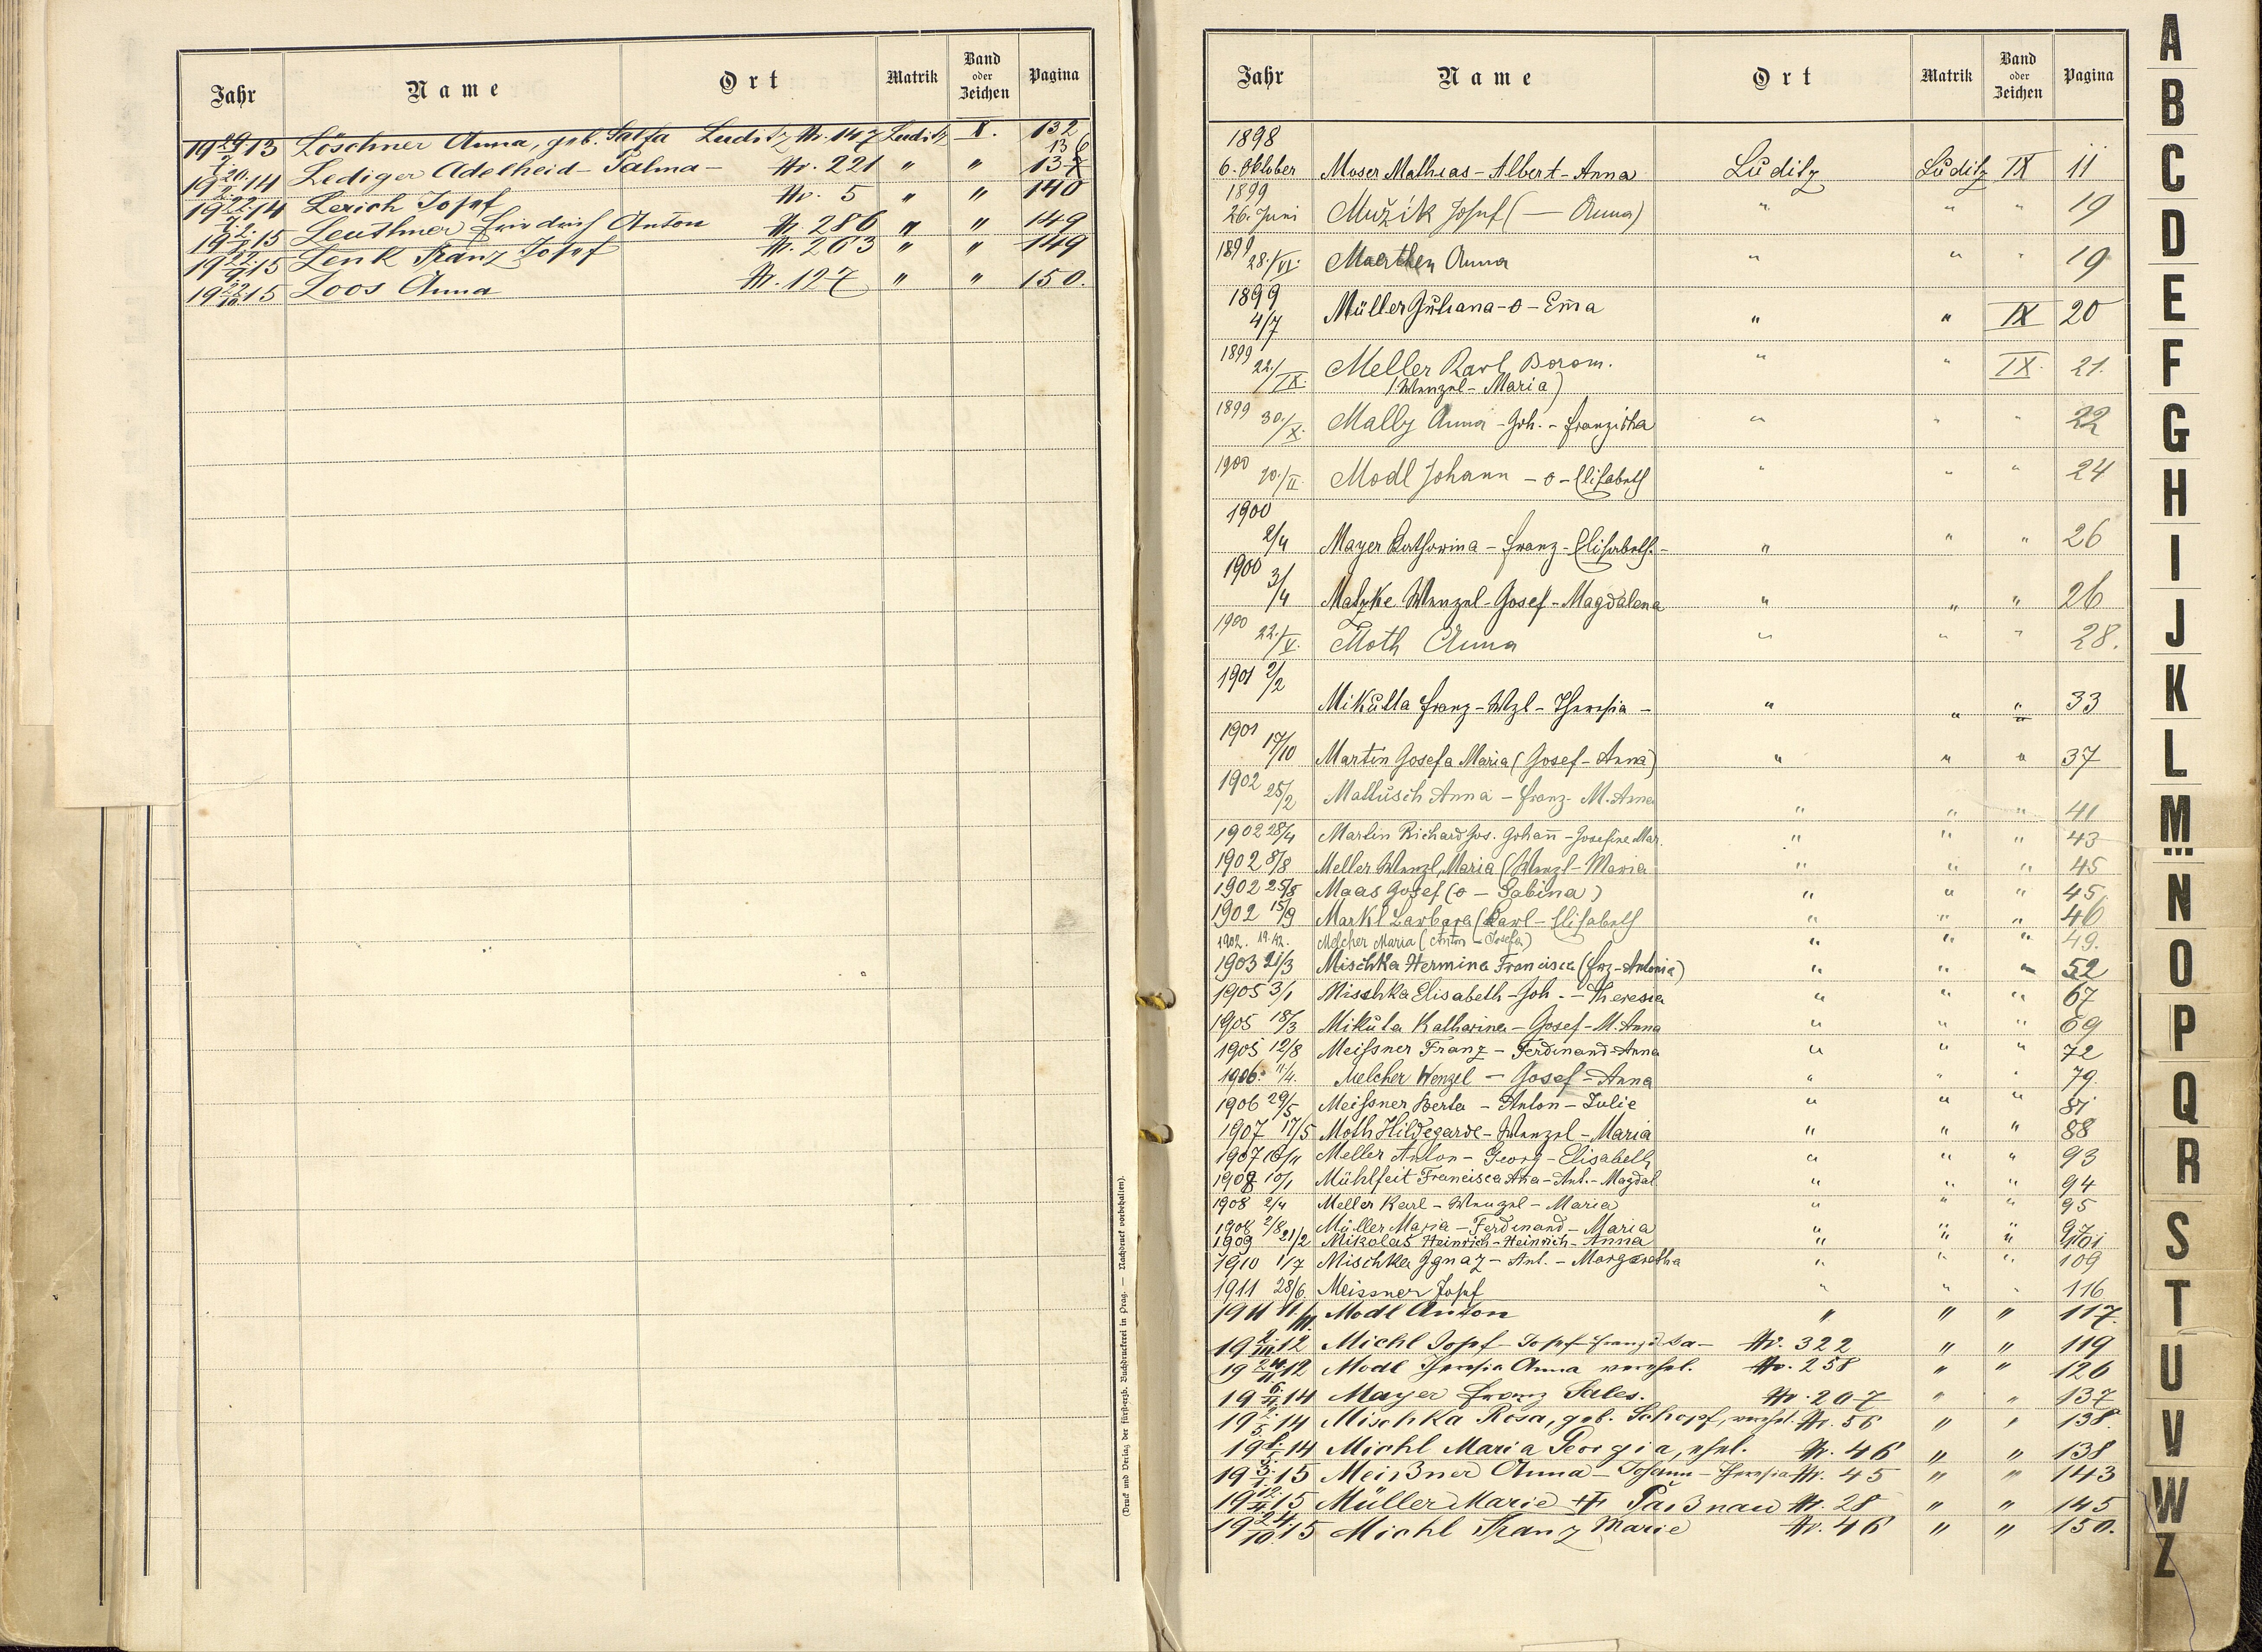 Jahr Name Ort Matrik Band oder Zeichen Pagina
19 29./7. 13 Löschner Anna, geb. Luditz Nr. 147 Luditz X. 132
19 20./2. 14 Lediger Adelheid - Palma - Nr. 221 " " 136
19 22./7. 14 Lerich Josef Nr. 5 " " 140
15 Leuthner Friedrich Anton Nr. 286 " " 149
15 Lenk Franz Josef Nr. 263 " " 149
19 22./10. 15 Loos Anna Nr. 127 " " 150.
(Druck und Verlag der fürsterzb. Buchdruckerei in Prag. — Nachdruck vorbehalten).
Jahr Name Ort Matrik Band oder Zeichen Pagina
1898
6. Oktober Moser Mathias - Albert - Anna Luditz Luditz IX 11
1899
26. Juni Mužik Josef (— Anna) " " " 19
1899 28./VI. Maerthen Anna " " " 19
1899
4/7 Müller Juliana - o - Em̄a " " IX 20
1899 22./IX. Meller Karl Borom. " " IX. 21.
(Wenzel - Maria)
1899 30./X. Mally Anna - Joh. - Franziska " " " 22
1900 20./II. Modl Johann - o - Elisabeth " " " 24
1900
2/4 Mayer Katharina - Franz - Elisabeth. - " " " 26
1900 3/4 Matzke Wenzel - Josef - Magdalena " " " 26
1900 22./V. Moth Anna " " " 28.
1901 2/2
Mikulla Franz - Wzl - Theresia - " " " 33
1901 17/10 Martin Josefa Maria (Josef - Anna) " " " 37
1902 25/2 Mallusch Anna - Franz - M. Anna " " " 41
1902 28/4 Martin Richard Jos. Johan̄ - Josefine Mar. " " " 43
1902 8/8 Meller Wenzl, Maria (Wenzl - Maria " " " 45
1902 25/8 Maas Josef (o - Sabina) " " " 45
1902 15/9 Markl Barbara (Karl - Elisabeth " " " 46
1902. 19.12. Melcher Maria (Anton - Josefa) " " " 49.
1903 21/3 Mischka Hermina Francisca (Frz - Antonia) " " " 52
1905 3/1 Mischka Elisabeth - Joh. - Theresia " " " 67
1905 18/3 Mikula Katharina - Josef - M. Anna " " " 69
1905 12/8 Meissner Franz - Ferdinand - Anna " " " 72
1906. 11/4. Melcher Wenzel - Josef - Anna " " " 79.
1906 29/5 Meissner Berta - Anton - Julie " " " 81
1907 17/5 Moth Hildegarde - Wenzel - Maria " " " 88
1907 Meller Anton - Georg - Elisabeth " " " 93
1908 10/1 Mühlfeit Francisca Ana - Ant. - Magdal " " " 94
1908 2/4 Meller Karl - Wenzel - Maria " " " 95
1908 2/8 Müller Maria - Ferdinand - Maria " " " 97
1909 21/2 Mikolas Heinrich - Heinrich - Anna " " " 101
1910 1/7 Mischka Ignaz - Ant. - Margaretha " " " 109
1911 28/6 Meissner Josef " " " 116
1911 Modl Anton " " " 117.
19 2./III. 12 Michl Josef - Josef - Franziska - Nr. 322 " " 119
19 24./11. 12 Modl Theresia Anna verehel. Nr. 258 " " 126
14 Mayer Franz Sales. Nr. 207 " " 137
19 2./5. 14 Mischka Rosa, geb. Schopf, verehel. Nr. 56 " " 138.
14 Michl Maria Georgia, ehel. Nr. 46 " " 138
19 3./1. 15 Meißner Anna - Johann - Theresia Nr. 45 " " 143
15 Müller Marie Nr. 28 " " 145
19 24./10. 15 Michl Franz Marie Nr. 46 " " 150.
A
B
C
D
E
F
G
H
I
J
K
L
M
N
O
P
Q
R
S
T
U
V
W
Z